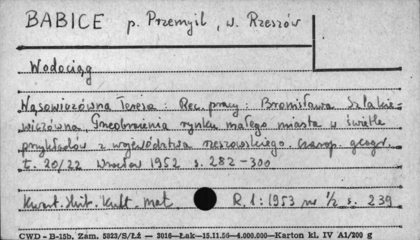 BABICE p. Przemyśl, w. Rzeszów
Wodociąg
Wąsowiczówna Teresa : Rec. pracy : Bronisława Szlakie-
wiczówna, Przeobrażenia rynku małego miasta w świetle
przykładów z województwa rzeszowskiego. Czasop. geogr.
t. 20/22 Wrocław 1952 s. 282-300
Kwart. Hist. Kult. Mat. R. 1: 1953 nr 1/2 s. 239
CWD - B-15b, Zam. 5823/S/Łż — 3016—Łak—15.11.56—4.000.000—Karton kl. IV A1/200 g